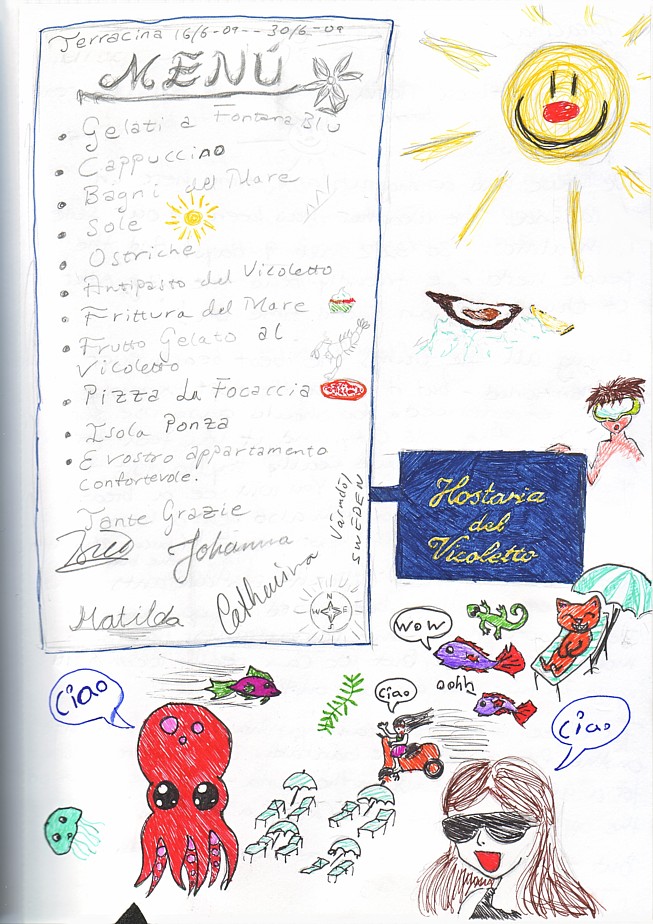 Terracina 16/6-09--30/6-09
MENÚ
• Gelati a Fontana Blu
• Cappuccino
• Bagni del Mare
• Sole
• Ostriche
• Antipasto del Vicoletto
• Frittura del Mare
• Frutto Gelato al
Vicoletto
• Pizza La Focaccia
• Isola Ponza
• E vostro appartamento
confortevole.
Tante Grazie
Johanna
Matilda
Catharina
Värmdö/
SWEDEN
N
W E
S
Hostaria
del
Vicoletto
WOW
oohh
Ciao
Ciao
Ciao